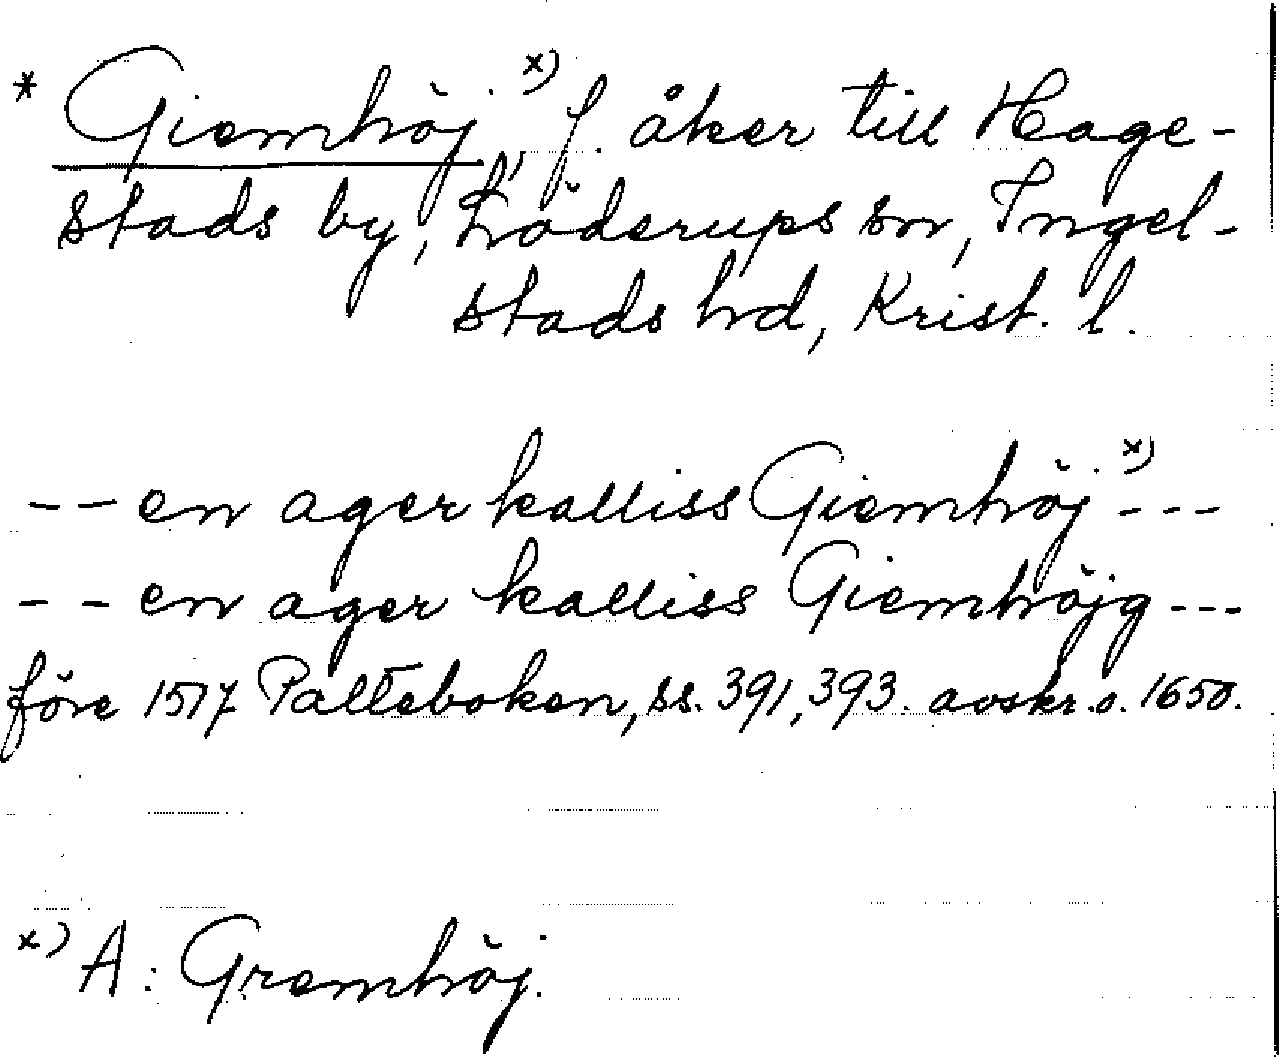 * Giemhöj x) f. åker till Hage-
stads by, Löderups sn, Ingel-
stads hd, Krist. l.
-- en ager kalliss Giemhöj x) ---
-- en ager kalliss Giemhöjg ---
före 1517 Palteboken, ss. 391, 393. avskr. o. 1650.
x) A: Gremhöj.